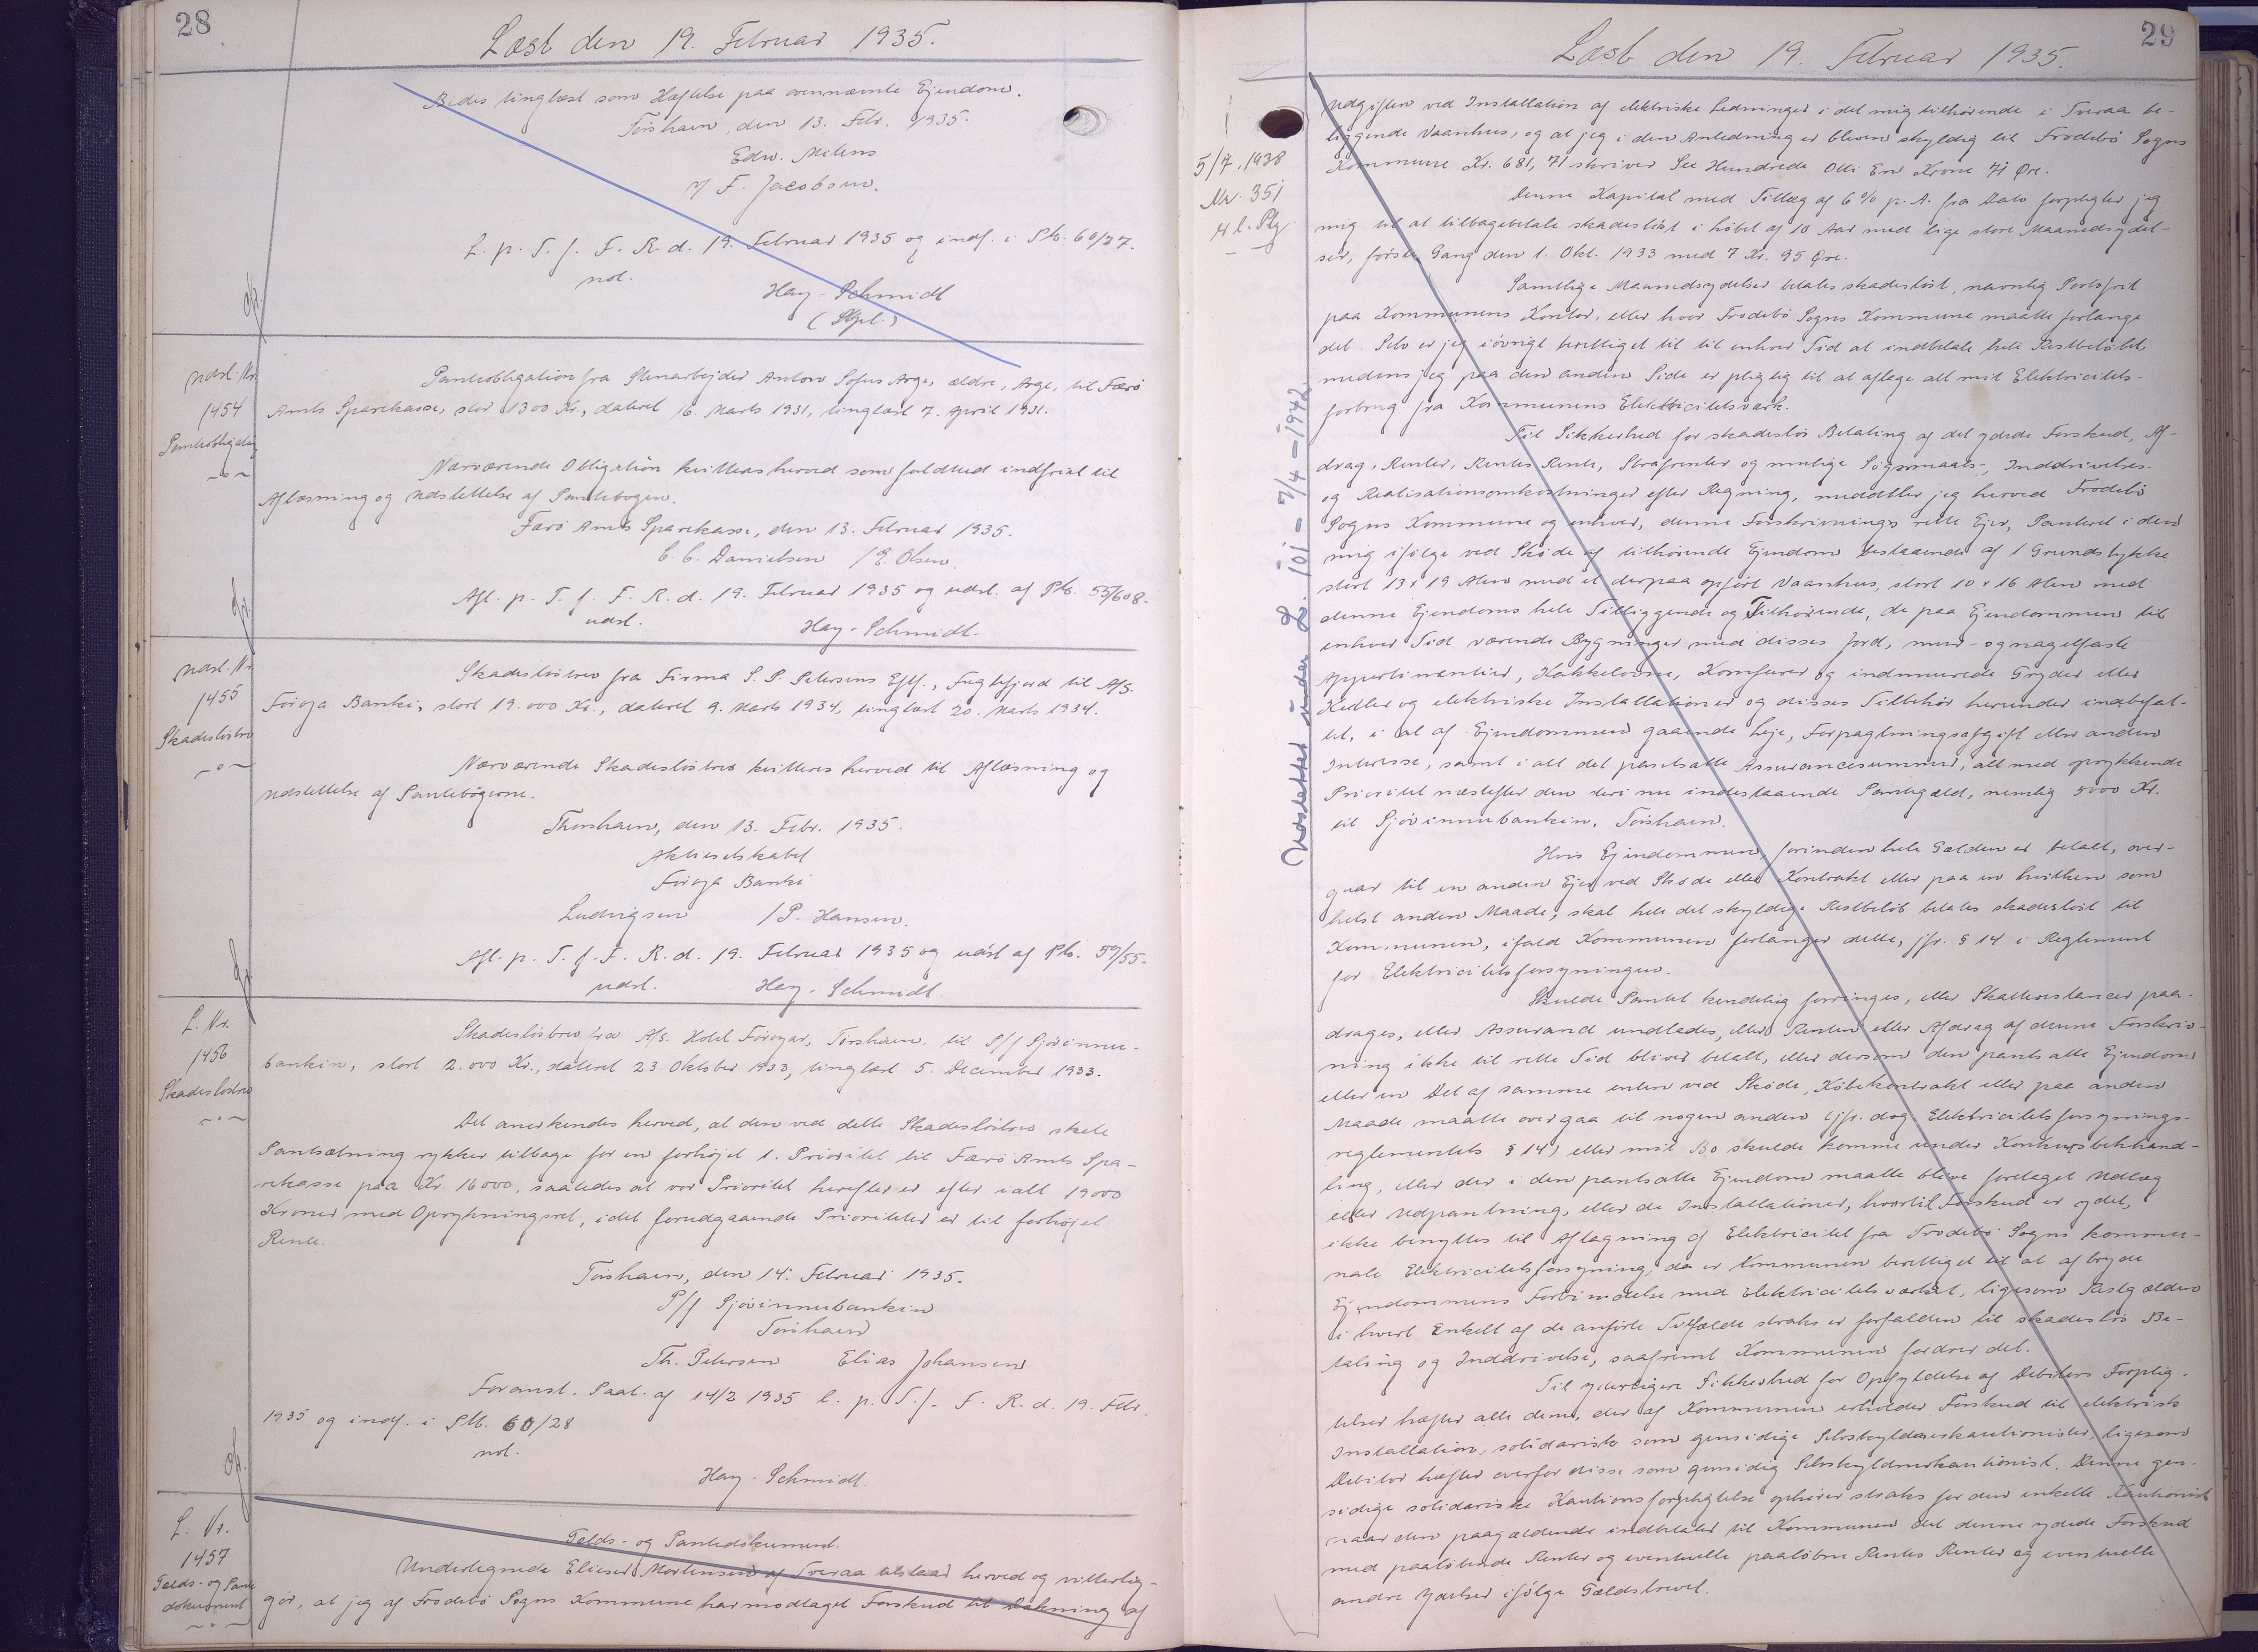 28
Læst den 19. Februar 1935.
Bedes tinglæst som Hæftelse paa ovennævnte Ejendom.
Tórshavn, den 13. Febr. 1935.
Edw. Mitens
v/ F. Jacobsen.
L. p. T. f. F. R. d. 19. Februar 1935 og indf. i Pb. 60/27.
not.
Hay-Schmidt
(Stpl.)
Udsl. Nr.
1454
Panteobligation
Panteobligation fra Stenarbejder Anton Sofus Arge, ældre, Arge, til Færø
Amts Sparekasse, stor 1300 Kr., dateret 16. Marts 1931, tinglæst 7. April 1931.
Nærværende Obligation kvitteres herved som fuldtud indfriet til
Aflæsning og Udslettelse af Pantebogen.
Færø Amts Sparekasse, den 13. Februar 1935.
C. C. Danielsen /E. Olsen.
Afl. p. T. f. F. R. d. 19. Februar 1935 og udsl. af Pb. 55/608.
udsl.
Hay-Schmidt.
Udsl. Nr.
1455
Skadesløsbrev
Skadesløsbrev fra Firma S. P. Petersens Eftf., Fuglefjord til A/S.
Føroya Banki, stort 19.000 Kr., dateret 9. Marts 1934, tinglæst 20. Marts 1934.
Nærværende Skadesløsbrev kvitteres herved til Aflæsning og
Udslettelse af Pantebøgerne.
Thorshavn, den 13. Febr. 1935.
Aktieselskabet
Føroya Banki
Ludvigsen /P. Hansen.
Afl. p. T. f. F. R. d. 19. Februar 1935 og udsl af Pb. 59/55.
udsl.
Hay-Schmidt.
L. Nr.
1456
Skadesløsbrev
Skadesløsbrev fra A/S. Hotel Föroyar, Tórshavn, til P/f Sjóvinnu-
bankin, stort 2.000 Kr., dateret 23. Oktober 1933, tinglæst 5. December 1933.
Det anerkendes herved, at den ved dette Skadesløsbrev skete
Pantsætning rykker tilbage for en forhøjet 1. Prioritet til Færø Amts Spa-
rekasse paa Kr. 16000, saaledes at vor Prioritet herefter er efter ialt 19000
Kroner med Oprykningsret, idet forudgaaende Prioriteter er til forhøjet
Rente.
Tórshavn, den 14. Februar 1935.
P/f Sjóvinnubankin
Tórshavn
Th. Petersen Elias Johansen
Foranst. Paat. af 14/2 1935 l. p. T. f. F. R. d. 19. Febr.
1935 og indf. i Pb. 60/28
not.
Hay-Schmidt.
L. Nr.
1457
Gælds- og Pante
dokument
Gælds- og Pantedokument.
Undertegnede Elieser Mortensen af Tveraa tilstaar herved og vitterlig-
gør, at jeg af Frodebø Sogns Kommune har modtaget Forskud til Dækning af
29
Læst den 19. Februar 1935.
5/7. 1938
Nr. 351
Udslettet under L. 101 - 7/4 - 1942.
Udgiften ved Installation af elektriske Ledninger i det mig tilhørende i Tveraa be-
liggende Vaanhus, og at jeg i den Anledning er bleven skyldig til Frodebø Sogns
Kommune Kr. 681,71 skriver Seks Hundrede Otti En Krone 71 Øre.
Denne Kapital med Tillæg af 6 % p. A. fra Dato forpligter jeg
mig til at tilbagebetale skadesløst i løbet af 10 Aar med lige store Maanedsydel-
ser, første Gang den 1. Okt. 1933 med 7 Kr. 95 Øre.
Samtlige Maanedsydelser betales skadesløst, navnlig Portofrit
paa Kommunens Kontor, eller hvor Frodebø Sogns Kommune maatte forlange
det. Selv er jeg iøvrigt berettiget til til enhver Tid at indbetale hele Restbeløbet
medens jeg paa den anden Side er pligtig til at aftage alt mit Elektricitets-
forbrug fra Kommunens Elektricitetsværk.
Til Sikkerhed for skadesløs Betaling af det ydede Forskud, Af-
drag, Renter, Rentes Rente, Strafrenter og mulige Søgsmaals-, Inddrivelses-
og Realisationsomkostninger efter Regning, meddeler jeg herved Frodebø
Sogns Kommune og enhver, denne Forskrivnings rette Ejer, Panteret i den
mig ifølge ved Skøde af tilhørende Ejendom bestaaende af 1 Grundstykke
stort 13 x 19 Alen med et derpaa opført Vaanhus, stort 10 x 16 Alen med
denne Ejendoms hele Tilliggende og Tilhørende, de paa Ejendommen til
enhver Tid værende Bygninger med disses jord, mur- og nagelfaste
Appertinentier, Kakkelovne, Komfurer og indmurede Gryder eller
Kedler og elektriske Installationer og disses Tilbehør herunder indbefat-
tet, i al af Ejendommen gaaende Leje, Forpagtningsafgift eller anden
Interesse, samt i alt det pantsatte Assurancesummer, alt med oprykkende
Prioritet næstefter den deri nu indestaaende Pantegæld, nemlig 5000 Kr.
til Sjóvinnubankin, Tórshavn.
Hvis Ejendommen, forinden hele Gælden er betalt, over-
gaar til en anden Ejer ved Skøde eller Kontrakt eller paa en hvilken som
helst anden Maade, skal hele det skyldige Restbeløb betales skadesløst til
Kommunen, ifald Kommunen forlanger dette, jfr. § 14 i Reglement
for Elektricitetsforsyningen.
Skulde Pantet kendelig forringes, eller Skatterestancer paa-
drages, eller Assurance undlades, eller Renten eller Afdrag af denne Forskriv-
ning ikke til rette Tid bliver betalt, eller dersom den pantsatte Ejendom
eller en Del af samme enten ved Skøde, Købekontrakt eller paa anden
Maade maatte overgaa til nogen anden (jfr. dog Elektricitetsforsynings-
reglementets § 14) eller mit Bo skulde komme under Konkursbehhand-
ling, eller der i den pantsatte Ejendom maatte blive foretaget Udlæg
eller Udpantning, eller de Installationer, hvortil Forskud er ydet,
ikke benyttes til Aftagning af Elektricitet fra Frodebø Sogns kommu-
nale Elektricitetsforsyning, da er Kommunen berettiget til at afbryde
Ejendommens Forbindelse med Elektricitetsværket, ligesom Restgælden
i hvert enkelt af de anførte Tilfælde straks er forfalden til skadesløs Be-
taling og Inddrivelse, saafremt Kommunen fordrer det.
Til yderligere Sikkerhed for Opfyldelse af Debitors Forplig-
telser hæfter alle dem, der af Kommunen erholder Forskud til elektrisk
Installation, solidarisk som gensidige Selvskyldnerkautionister, ligesom
Debitor hæfter overfor disse som gensidig Selvskyldnerkautionist. Denne gen-
sidige solidariske Kautionsforpligtelse ophører straks for den enkelte Kautionist
naar den paagældende indbetaler til Kommunen det denne ydede Forskud
med paaløbende Renter og eventuelle paaløbne Rentes Renter og eventuelle
andre Ydelser ifølge Gældsbrevet.